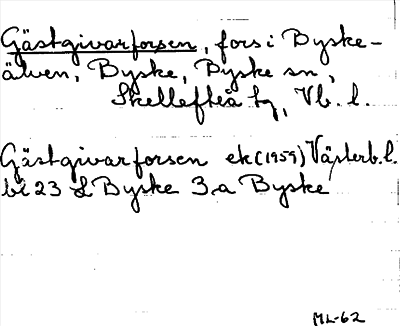 Gästgivarforsen, fors i Byske-
älven, Byske, Byske sn,
Skellefteå tg, Vb. l.
Gästgivarforsen ek (1959) Västerb. l.
bl 23 L Byske 3,a Byske
ML-62